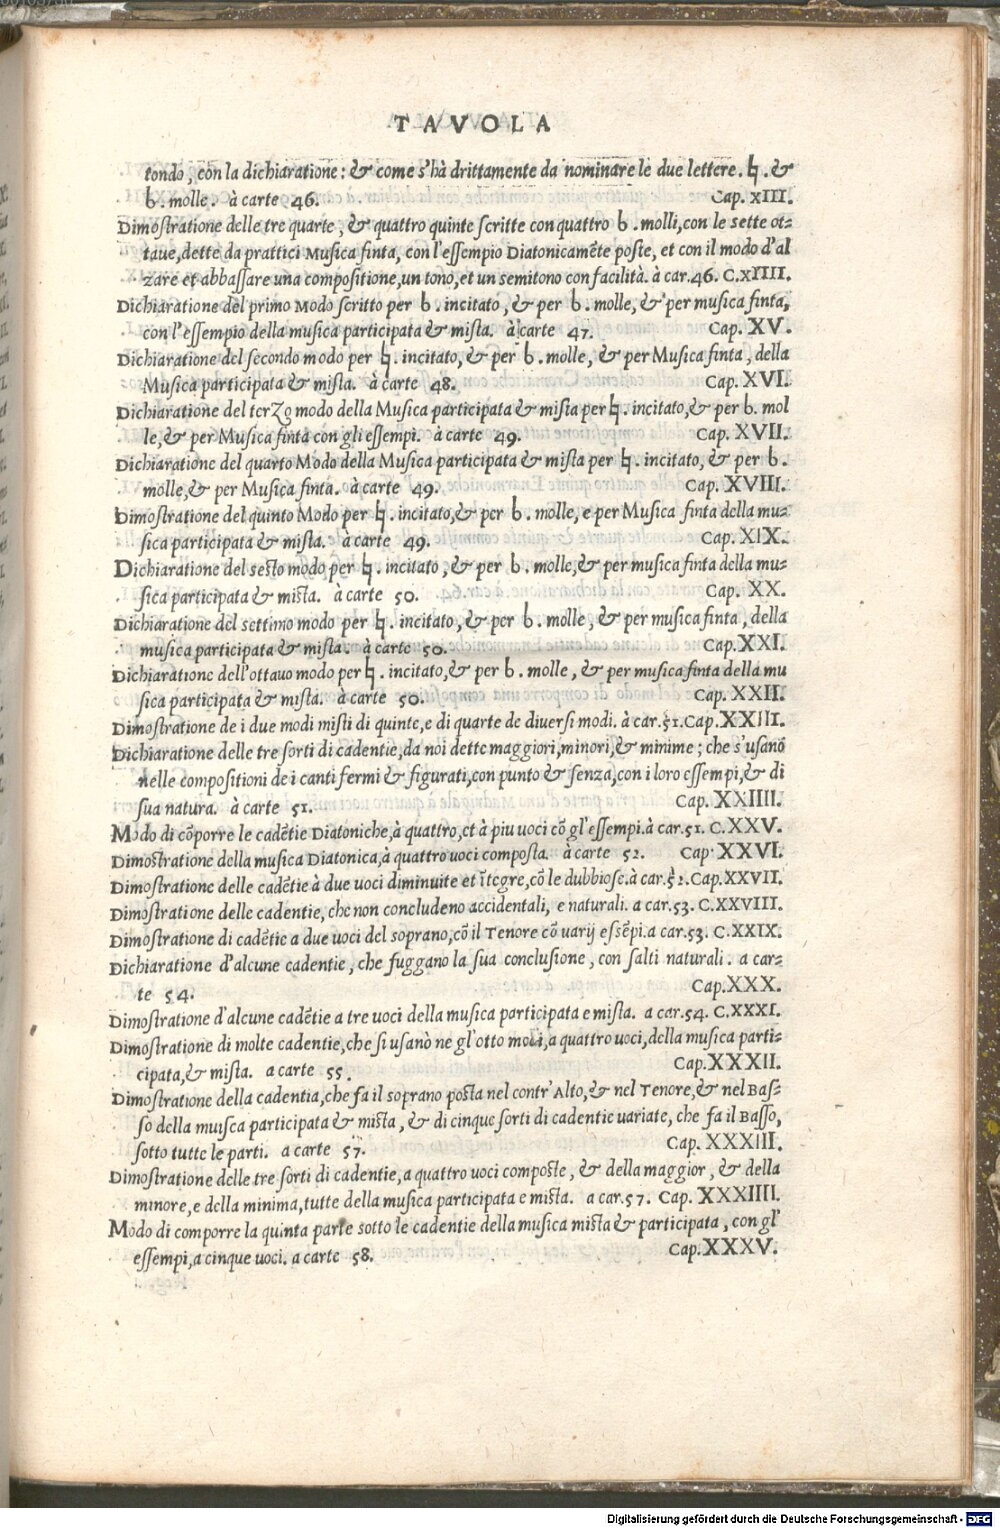 TAVOLA
tondo, con la dichiaratione: & come s'hà drittamente da nominare le due lettere. ♮. &
b. molle. à carte 46. Cap. XIII.
Dimostratione delle tre quarte, & quattro quinte scritte con quattro b. molli, con le sette ot=
taue, dette da prattici Musica finta, con l'essempio Diatonicamẽte poste, et con il modo d'al
zare et abbassare una compositione, un tono, et un semitono con facilità. à car. 46. C. XIIII.
Dichiaratione del primo Modo scritto per b. incitato, & per b. molle, & per musica finta,
con l'essempio della musica participata & mista. à carte 47. Cap. XV.
Dichiaratione del secondo modo per ♮. incitato, & per b. molle, & per Musica finta, della
Musica participata & mista. à carte 48. Cap. XVI.
Dichiaratione del terzo modo della Musica participata & mista per ♮. incitato, & per b. mol
le, & per Musica finta con gli essempi. à carte 49. Cap. XVII.
Dichiaratione del quarto Modo della Musica participata & mista per ♮. incitato, & per b.
molle, & per Musica finta. à carte 49. Cap. XVIII.
Dimostratione del quinto Modo per ♮. incitato, & per b. molle, e per Musica finta della mu=
sica participata & mista. à carte 49. Cap. XIX.
Dichiaratione del sesto modo per ♮. incitato, & per b. molle, & per musica finta della mu=
sica participata & mista. à carte 50. Cap. XX.
Dichiaratione del settimo modo per ♮. incitato, & per b. molle, & per musica finta, della
musica participata & mista. à carte 50. Cap. XXI.
Dichiaratione dell'ottauo modo per ♮. incitato, & per b. molle, & per musica finta della mu
sica participata & mista. à carte 50. Cap. XXII.
Dimostratione de i due modi misti di quinte, e di quarte de diuersi modi. à car. 51. Cap. XXIII.
Dichiaratione delle tre sorti di cadentie, da noi dette maggiori, minori, & minime; che s'usano
nelle compositioni de i canti fermi & figurati, con punto & senza, con i loro essempi, & di
sua natura. à carte 51. Cap. XXIIII.
Modo di cõporre le cadẽtie Diatoniche, à quattro, et à piu uoci cõ gl'essempi. à car. 51. C. XXV.
Dimostratione della musica Diatonica, à quattro uoci composta. à carte 52. Cap. XXVI.
Dimostratione delle cadẽtie à due uoci diminuite et ĩtegre, cõ le dubbiose. à car. 52. Cap. XXVII.
Dimostratione delle cadentie, che non concludeno accidentali, e naturali. a car. 53. C. XXVIII.
Dimostratione di cadẽtie a due uoci del soprano, cõ il Tenore cõ uarij essẽpi. a car. 53. C. XXIX.
Dichiaratione d'alcune cadentie, che fuggano la sua conclusione, con salti naturali. a car=
te 54. Cap. XXX.
Dimostratione d'alcune cadẽtie a tre uoci della musica participata e mista. a car. 54. C. XXXI.
Dimostratione di molte cadentie, che si usanò ne gl'otto modi, a quattro uoci, della musica parti=
cipata, & mista. a carte 55. Cap. XXXII.
Dimostratione della cadentia, che fa il soprano posta nel contr'Alto, & nel Tenore, & nel Bas=
so della muisca participata & mista, & di cinque sorti di cadentie uariate, che fa il Basso,
sotto tutte le parti. a carte 57. Cap. XXXIII.
Dimostratione delle tre sorti di cadentie, a quattro uoci composte, & della maggior, & della
minore, e della minima, tutte della musica participata e mista. a car. 57. Cap. XXXIIII.
Modo di comporre la quinta parte sotto le cadentie della musica mista & participata, con gl'
essempi, a cinque uoci. a carte 58. Cap. XXXV.
Digitalisierung gefördert durch die Deutsche Forschungsgemeinschaft - DFG